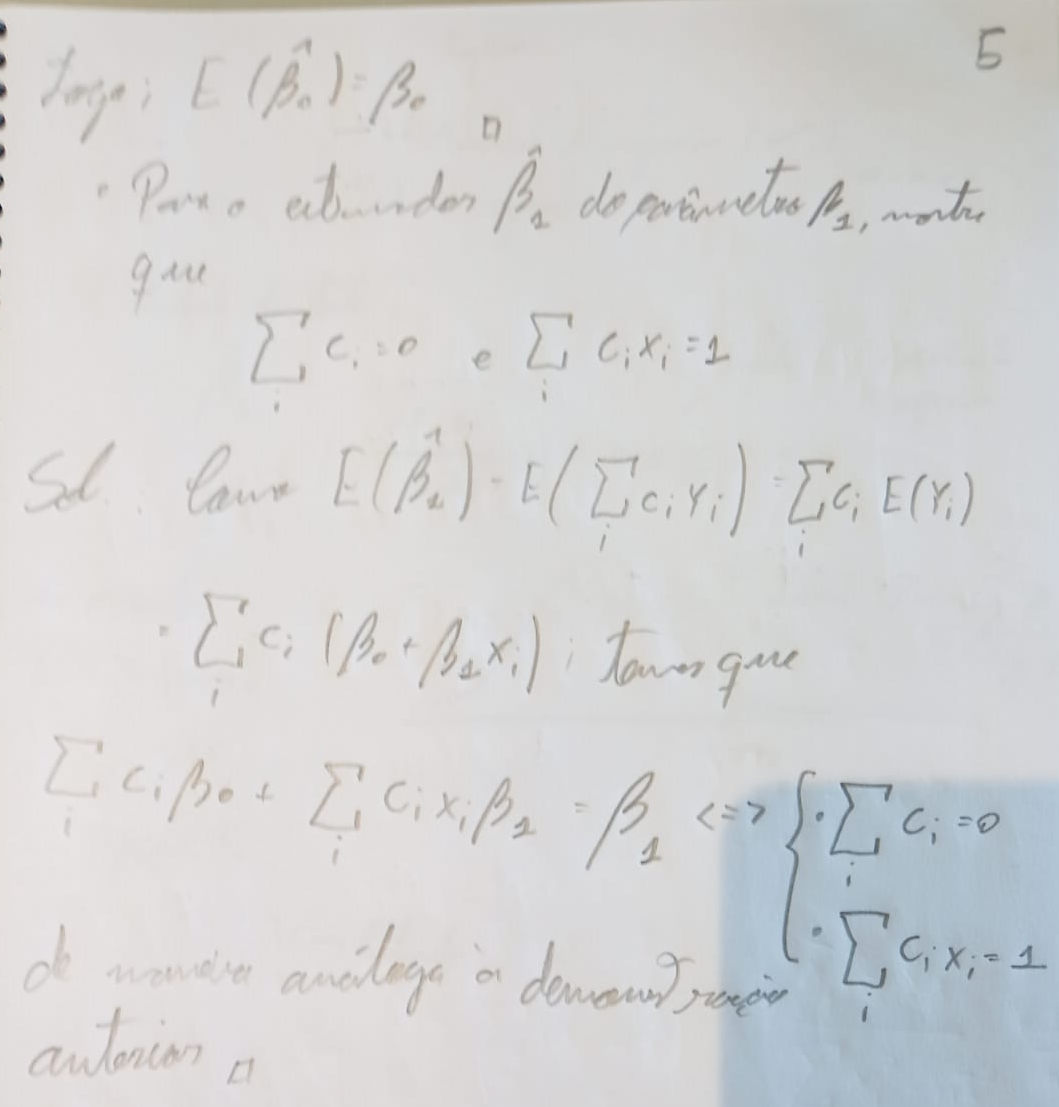 5
Logo; E(β̂₀) = β₀ □
• Para o estimador β̂₁ do parâmetro β₁, mostre
que
∑ᵢ cᵢ = 0 e ∑ᵢ cᵢ xᵢ = 1
Sol. Como E(β̂₁) = E(∑ᵢ cᵢ Yᵢ) = ∑ᵢ cᵢ E(Yᵢ)
= ∑ᵢ cᵢ (β₀ + β₁ xᵢ) ; temos que
∑ᵢ cᵢ β₀ + ∑ᵢ cᵢ xᵢ β₁ = β₁ <=> { • ∑ᵢ cᵢ = 0
• ∑ᵢ cᵢ xᵢ = 1
de maneira análoga à demonstração
anterior □